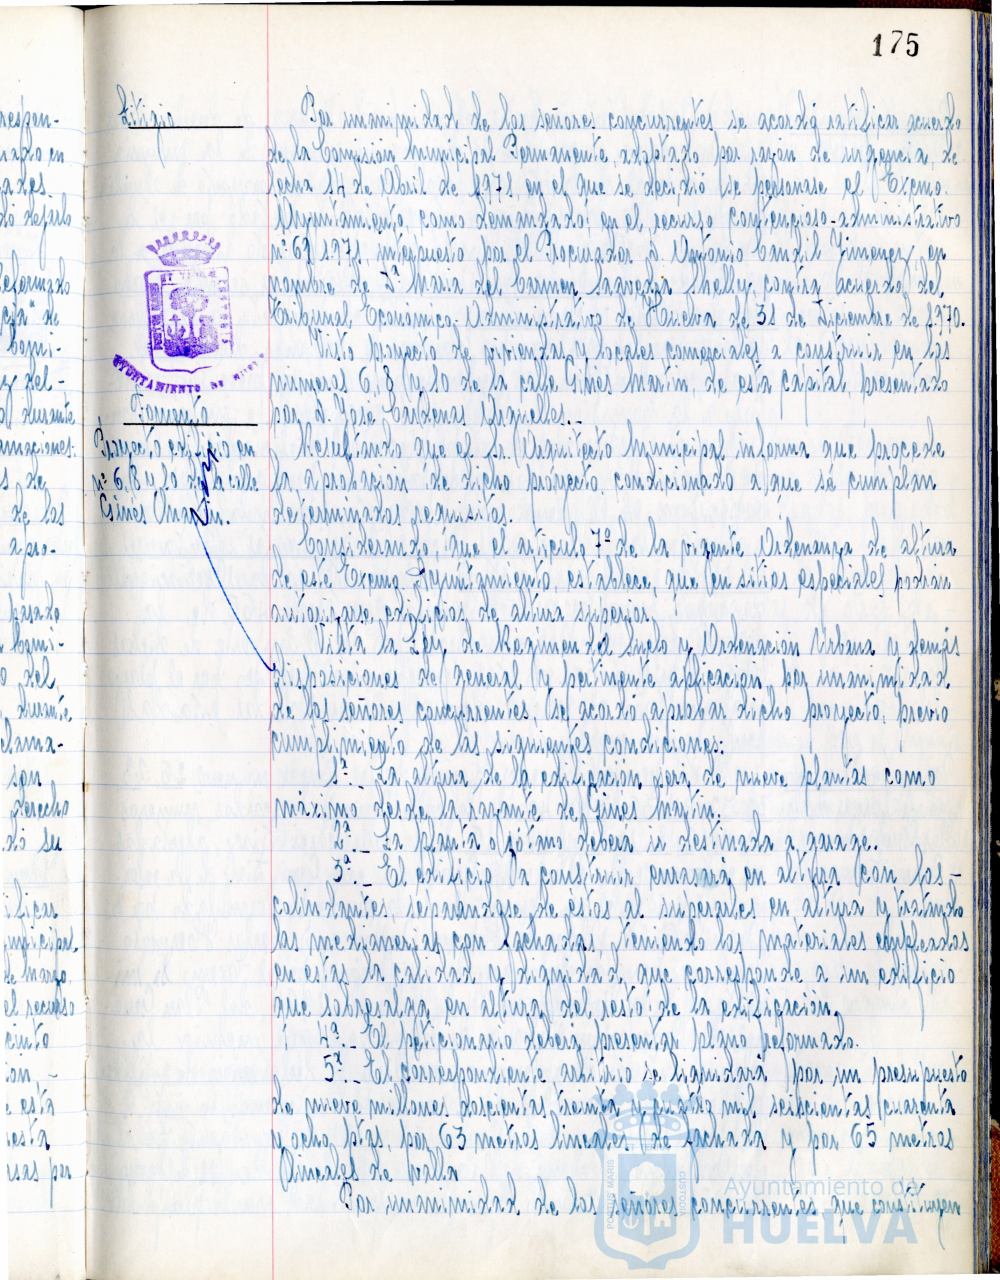 175
Litigio
Por unanimidad de los señores concurrentes se acordó ratificar acuerdo
de la Comisión Municipal Permanente, adoptado por razon de urgencia, de
fecha 14 de Abril de 1971, en el que se decidió se personase el Excmo.
Ayuntamiento, como demandado, en el recurso contencioso-administrativo
nº 68/1971, interpuesto por el Procurador D. Antonio Jimenez, en
nombre de Dª Maria del Carmen Shelly, contra acuerdo del
Tribunal Economico Administrativo de Huelva de 31 de Diciembre de 1970.
AYUNTAMIENTO DE
Fomento
Proyecto edificio en
nº 6, 8 y 10 de la calle
Gines Martin.
Visto proyecto de viviendas y locales comerciales a construir en los
números 6, 8 y 10 de la calle Gines Martin, de esta capital, presentado
por D. Jose Cardenas Arguelles.-
Resultando que el Sr. Arquitecto Municipal informa que procede
la aprobacion de dicho proyecto, condicionado a que se cumplan
determinados requisitos.
Considerando, que el artículo 7º de la vigente Ordenanza de altura
de este Excmo. Ayuntamiento, establece, que en sitios especiales podrán
autorizarse edificios de altura superior.
Vista la Ley de Régimen del Suelo y Ordenación Urbana y demás
disposiciones de general y pertinente aplicación, por unanimidad
de los señores concurrentes, se acordó aprobar dicho proyecto, previo
cumplimiento de las siguientes condiciones:
1ª.- La altura de la edificación será de nueve plantas como
máximo desde la rasante de Gines Martin.
2ª.- La planta sótano deberá ir destinada a garage.
3ª.- El edificio a construir enrasará en altura con los-
colindantes, separandose de estos al superarles en altura y tratando
las medianerias con fachadas, teniendo los materiales empleados
en estas la calidad y dignidad que corresponde a un edificio
que sobresalga en altura del resto de la edificación.
4ª.- El peticionario deberá presentar plano reformado.
5ª.- El correspondiente arbitrio se liquidará por un presupuesto
de nueve millones doscientas treinta y cuatro mil seiscientas cuarenta
y ocho ptas, por 63 metros lineales de fachada y por 65 metros
lineales de valla
Por unanimidad de los señores concurrentes, que constituyen
Ayuntamiento de
HUELVA
PORTUS MARIS